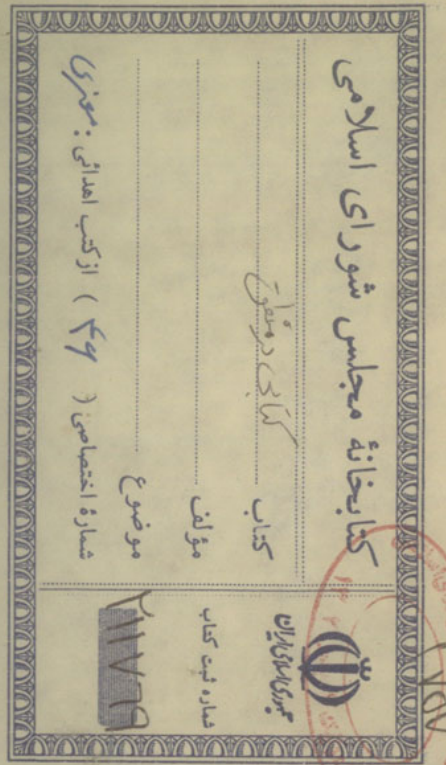 کتابخانهٔ مجلس شورای اسلامی
کتاب کتابی در منطق
مؤلف
موضوع
شمارهٔ اختصاصی ( ۴۶ ) از کتب اهدائی :
جمهوری اسلامی ایران
شماره ثبت کتاب